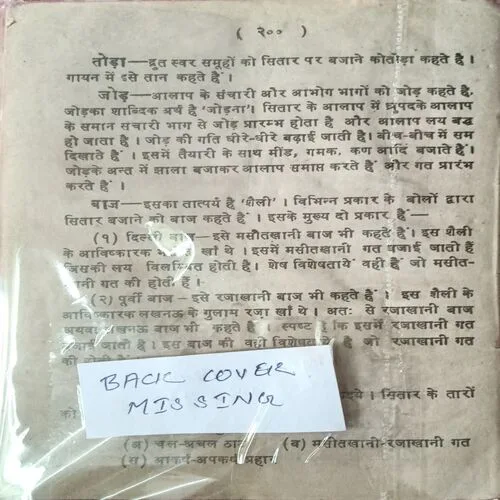 ( २०० )
तोड़ा—द्रुत स्वर समूहों को सितार पर बजाने को तोड़ा कहते हैं।
गायन में इसे तान कहते हैं।
जोड़—आलाप के संचारी और आभोग भागों को जोड़ कहते हैं,
जोड़का शाब्दिक अर्थ है 'जोड़ना'। सितार के आलाप में ध्रुपदके आलाप
के समान संचारी भाग से जोड़ प्रारम्भ होता है और आलाप लय बद्ध
हो जाता है। जोड़ की गति धीरे-धीरे बढ़ाई जाती है। बीच-बीच में सम
दिखाते हैं। इसमें तैयारी के साथ मींड, गमक, कण आदि बजाते हैं।
जोड़के अन्त में झाला बजाकर आलाप समाप्त करते हैं और गत प्रारंभ
करते हैं।
बाज—इसका तात्पर्य है 'शैली'। विभिन्न प्रकार के बोलों द्वारा
सितार बजाने को बाज कहते हैं। इसके मुख्य दो प्रकार हैं—
(१) दिल्ली बाज—इसे मसीतखानी बाज भी कहते हैं। इस शैली
के आविष्कारक खाँ थे। इसमें मसीतखानी गत बजाई जाती है
जिसकी लय विलम्बित होती है। शेष विशेषतायें वही हैं जो मसीत-
खानी गत की होती हैं।
(२) पूर्वी बाज—इसे रजाखानी बाज भी कहते हैं। इस शैली के
आविष्कारक लखनऊ के गुलाम रजा खाँ थे। अतः से रजाखानी बाज
अथवा लखनऊ बाज भी कहते हैं। स्पष्ट है कि इसमें रजाखानी गत
बजाई जाती है। इस बाज की वही विशेषता है जो रजाखानी गत
की होती
BACK COVER
MISSING
सितार के तारों
को
(अ) चल-अचल ठाठ (ब) मसीतखानी-रजाखानी गत
(स) आकर्ष-अपकर्ष प्रहार